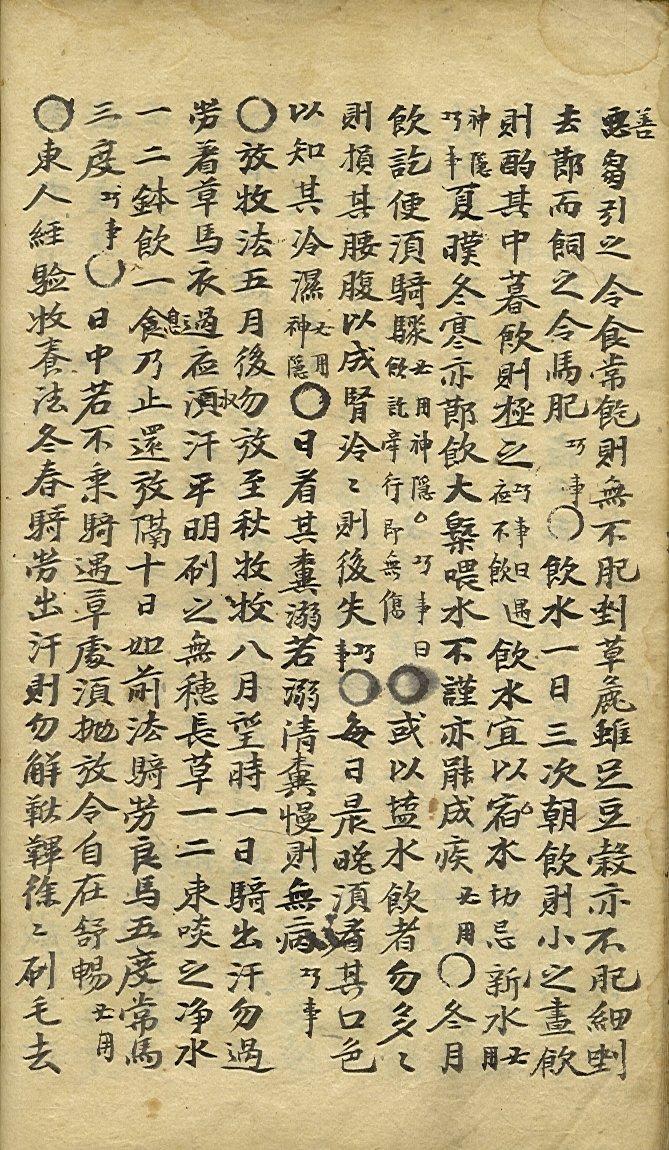 惡善芻引之令食常飽則無不肥剉草麁雖足豆穀亦不肥細剉
去節而飼之令馬肥巧事○飲水一日三次朝飲則小之晝飲
則酌其中暮飲則極之巧事曰遇夜不飲飲水宜以宿水切忌新水必用
神隱巧事夏暵冬寒亦節飲大槩喂水不謹亦能成疾必用○冬月
飲訖便須騎驟必用神隱巧事曰飲訖牽行即無傷○或以塩水飲者勿多〻
則損其腰腹以成腎冷〻則後失巧事○每日晨晚須看其口色
以知其冷濕必用神隱○日看其糞溺若溺清糞慢則無病巧事
○放牧法五月後勿放至秋牧牧八月望時一日騎出汗勿過
勞着草馬衣過夜須汗平明刷之無穗長草一二束啖之净水
一二鉢飲一食息乃止還放隔十日如前法騎勞良馬五度常馬
三度巧事○日中若不乘騎遇草處須抛放令自在舒暢必用
○東人經驗牧養法冬春騎勞出汗則勿解鞍韂徐〻刷毛去